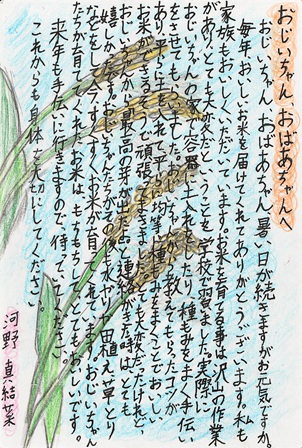 おじいちゃん、おばあちゃんへ
おじいちゃん、おばあちゃん、暑い日が続きますがお元気ですか。
毎年、おいしいお米を届けてくれてありがとうございます。私も
家族もおいしくいただいています。お米を育てる事は沢山の作業
があり、とても大変だということを学校で習いました。実際に
おじいちゃんの家で容器に土入れをしたり、種もみをまく手伝い
をさせてもらいました。おじいちゃんが教えてくれたコツが
あり、平らに土を入れて平らに均等に種もみをまくことでおいしい
お米ができるので頑張りました。とても大変だったけれど、
おじいちゃんから最高の芽が出たと連絡がきた時は、とても
嬉しかったです。おじいちゃんたちがその後、水やり、田植え、草とり
などをして、今、すくすくお米が育ってくれています。おじいちゃん
たちが育ててくれたお米は、もちもちしてとてもおいしいです。
来年も手伝いに行きますので、待っていてください。
これからも身体を大切にしてください。
河野 真結菜